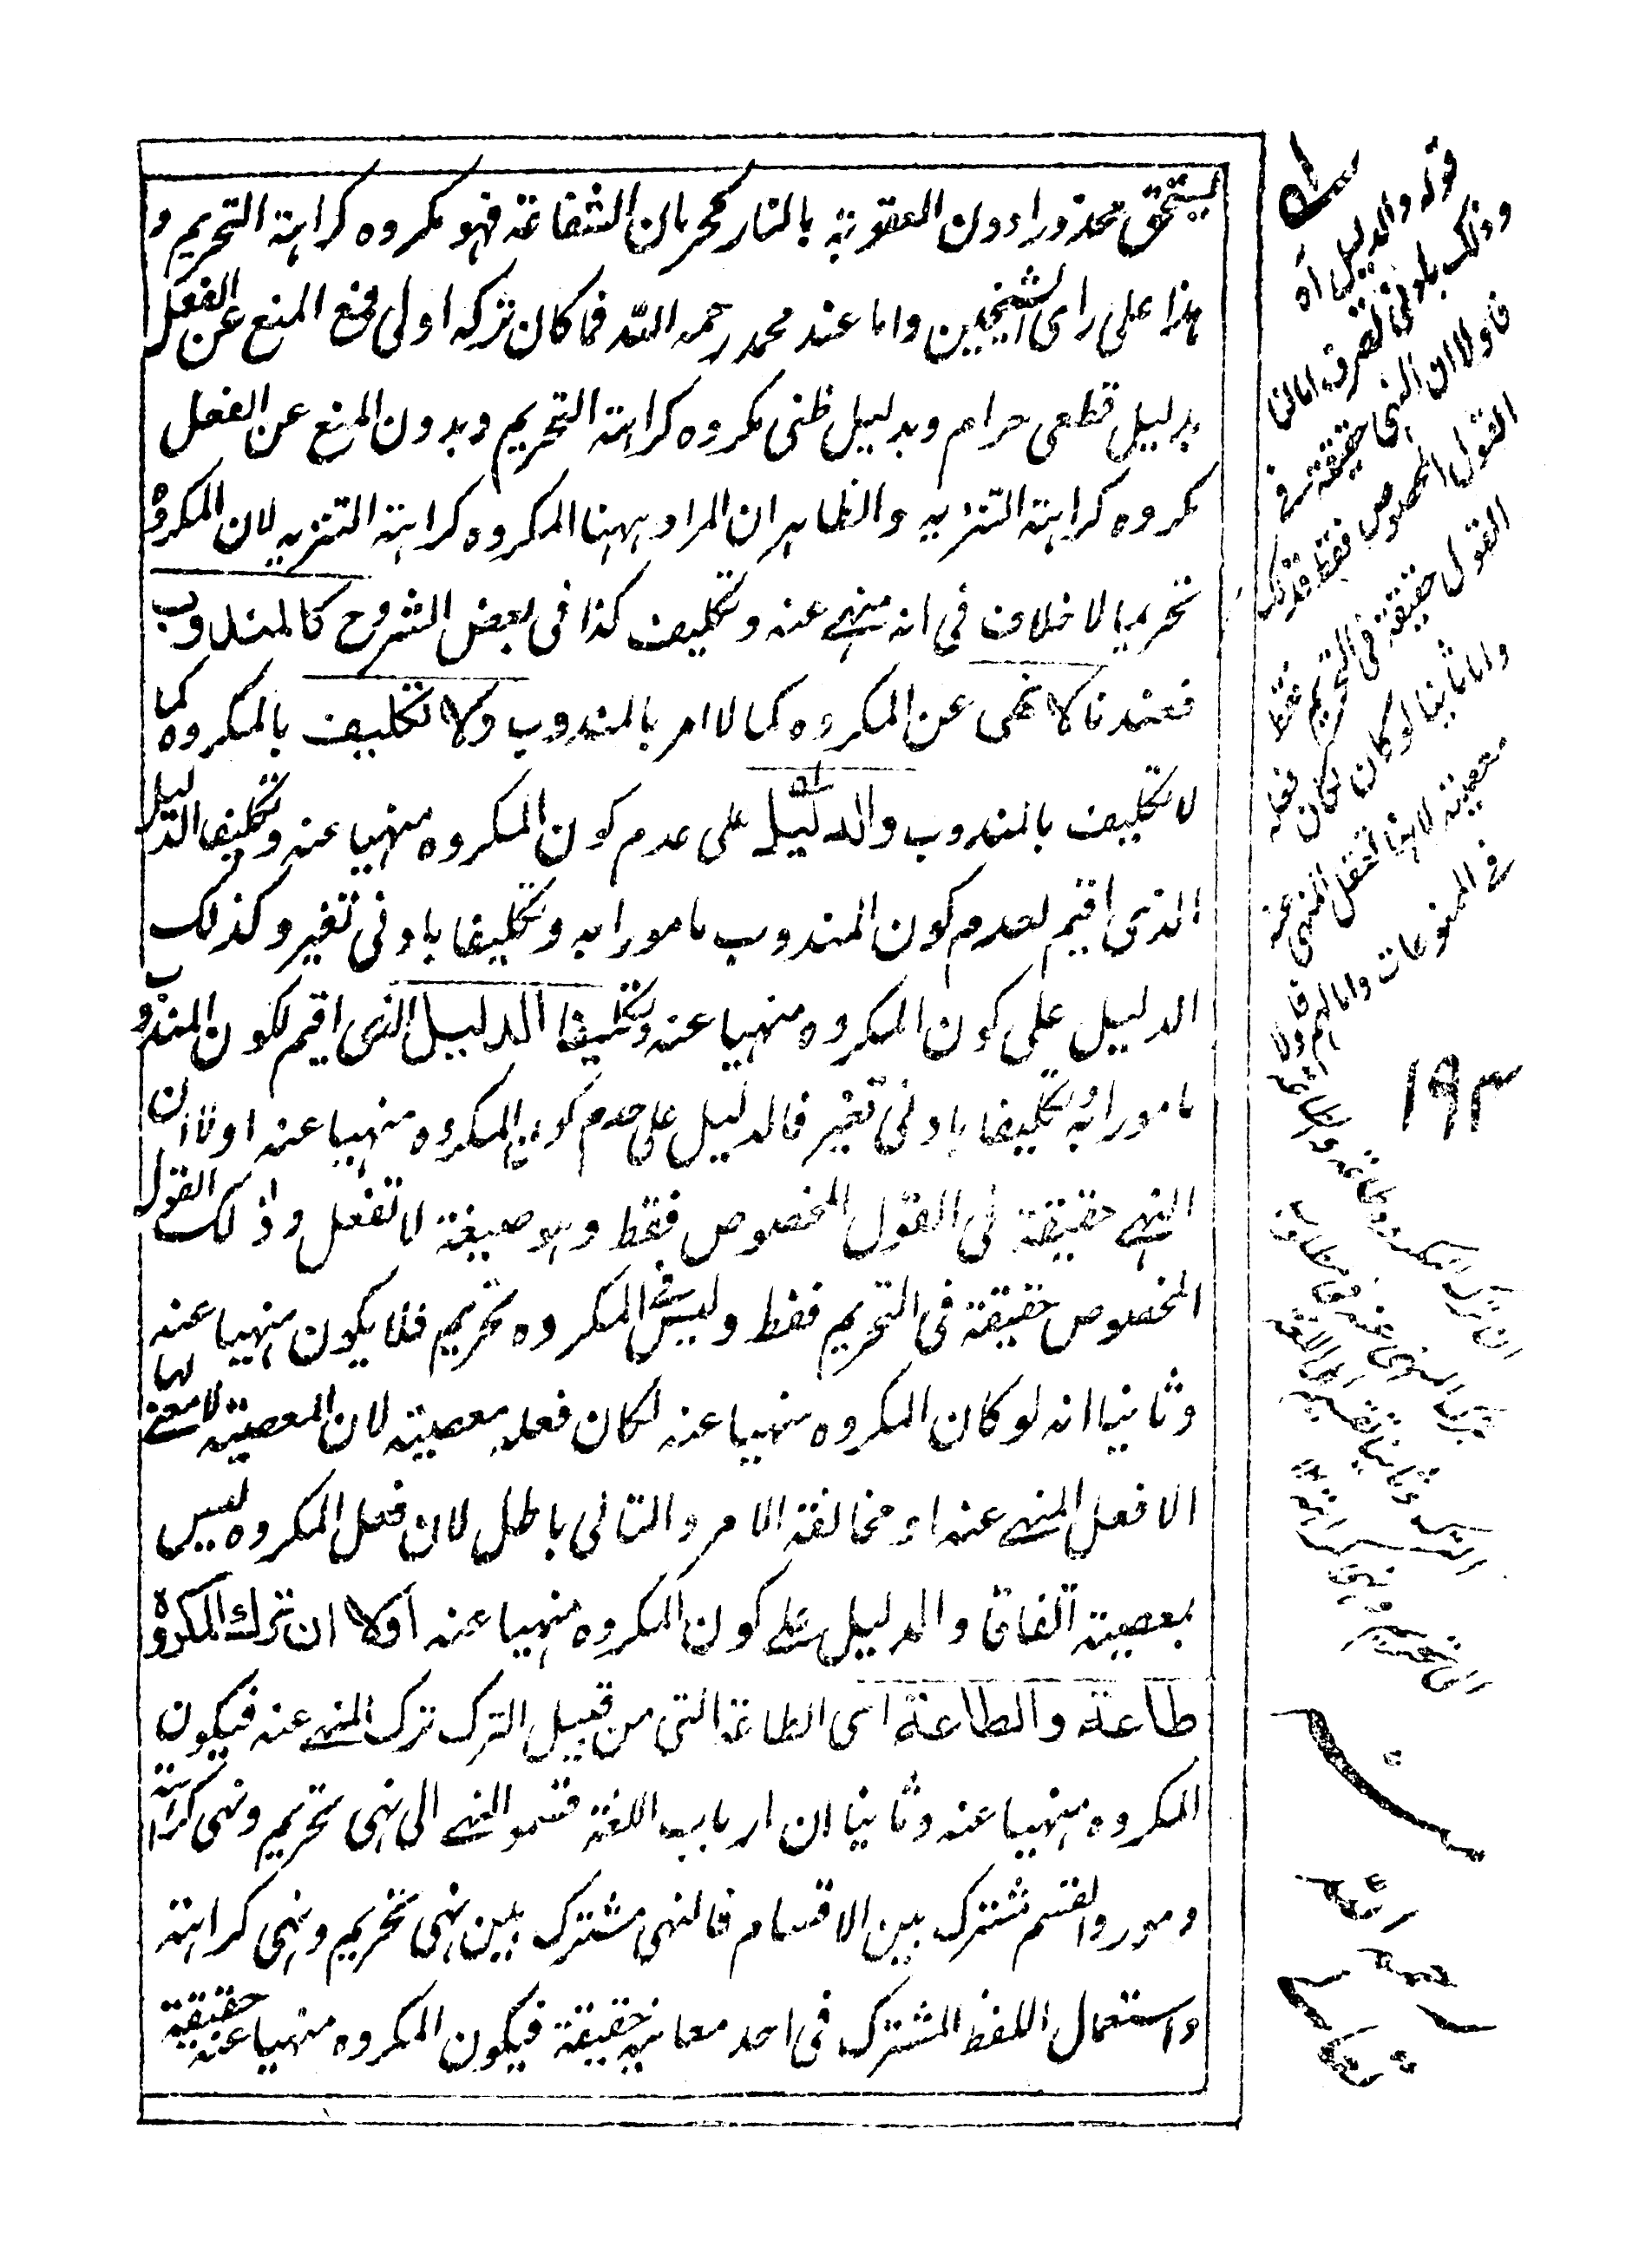 يستحق محذورا دون العقوبة بالنار كحرمان الشفاعة فهو مكروه كراهة التحريم و
هذا على راى الشيخين واما عند محمد رحمه الله فما كان تركه اولى فمع المنع عن الفعل
بدليل قطعى حرام وبدليل ظنى مكروه كراهة التحريم وبدون المنع عن الفعل
مكروه كراهة التنزيه والظاهر ان المراد ههنا المكروه كراهة التنزيه لان المكروه
تحريما لا خلاف فى انه منهى عنه وتكليف كذا فى بعض الشروح كالمندوب
فعندنا لا نهى عن المكروه كما لا امر بالمندوب ولا تكليف بالمكروه كما
لا تكليف بالمندوب والدليل على عدم كون المكروه منهيا عنه وتكليفا الدليل
الذى اقيم لعدم كون المندوب مامورا به وتكليفا بادنى تغير وكذلك
الدليل على كون المكروه منهيا عنه وتكليفا الدليل الذى اقيم لكون المندوب
مامورا به وتكليفا بادنى تغير فالدليل على عدم كون المكروه منهيا عنه اولا ان
النهى حقيقة فى القول المخصوص فقط وهو صيغة لا تفعل وذلك القول
المخصوص حقيقة فى التحريم فقط وليس فى المكروه تحريم فلا يكون منهيا عنه
وثانيا انه لو كان المكروه منهيا عنه لكان فعله معصية لان المعصية لا معنى لها
الا فعل المنهى عنه او مخالفة الامر والتالى باطل لان فعل المكروه ليس
بمعصية اتفاقا والدليل على كون المكروه منهيا عنه اولا ان ترك المكروه
طاعة والطاعة اى الطاعة التى من قبيل الترك ترك المنهى عنه فيكون
المكروه منهيا عنه وثانيا ان ارباب اللغة قسموا النهى الى نهى تحريم ونهى كراهة
ومورد القسم مشترك بين الاقسام فالنهى مشترك بين نهى تحريم ونهى كراهة
واستعمال اللفظ المشترك فى احد معانيه حقيقة فيكون المكروه منهيا عنه حقيقة
قوله والدليل اه
وذلك بادنى تصرف اما لنا
فاولا ان النهى حقيقة فى
القول المخصوص فقط وذلك
القول حقيقة فى التحريم فقط
واما ثانيا لو كان لكان فعله
معصية لانها فعل المنهى عنه
فى الممنوعات واما لهم فاولا
١٩٣